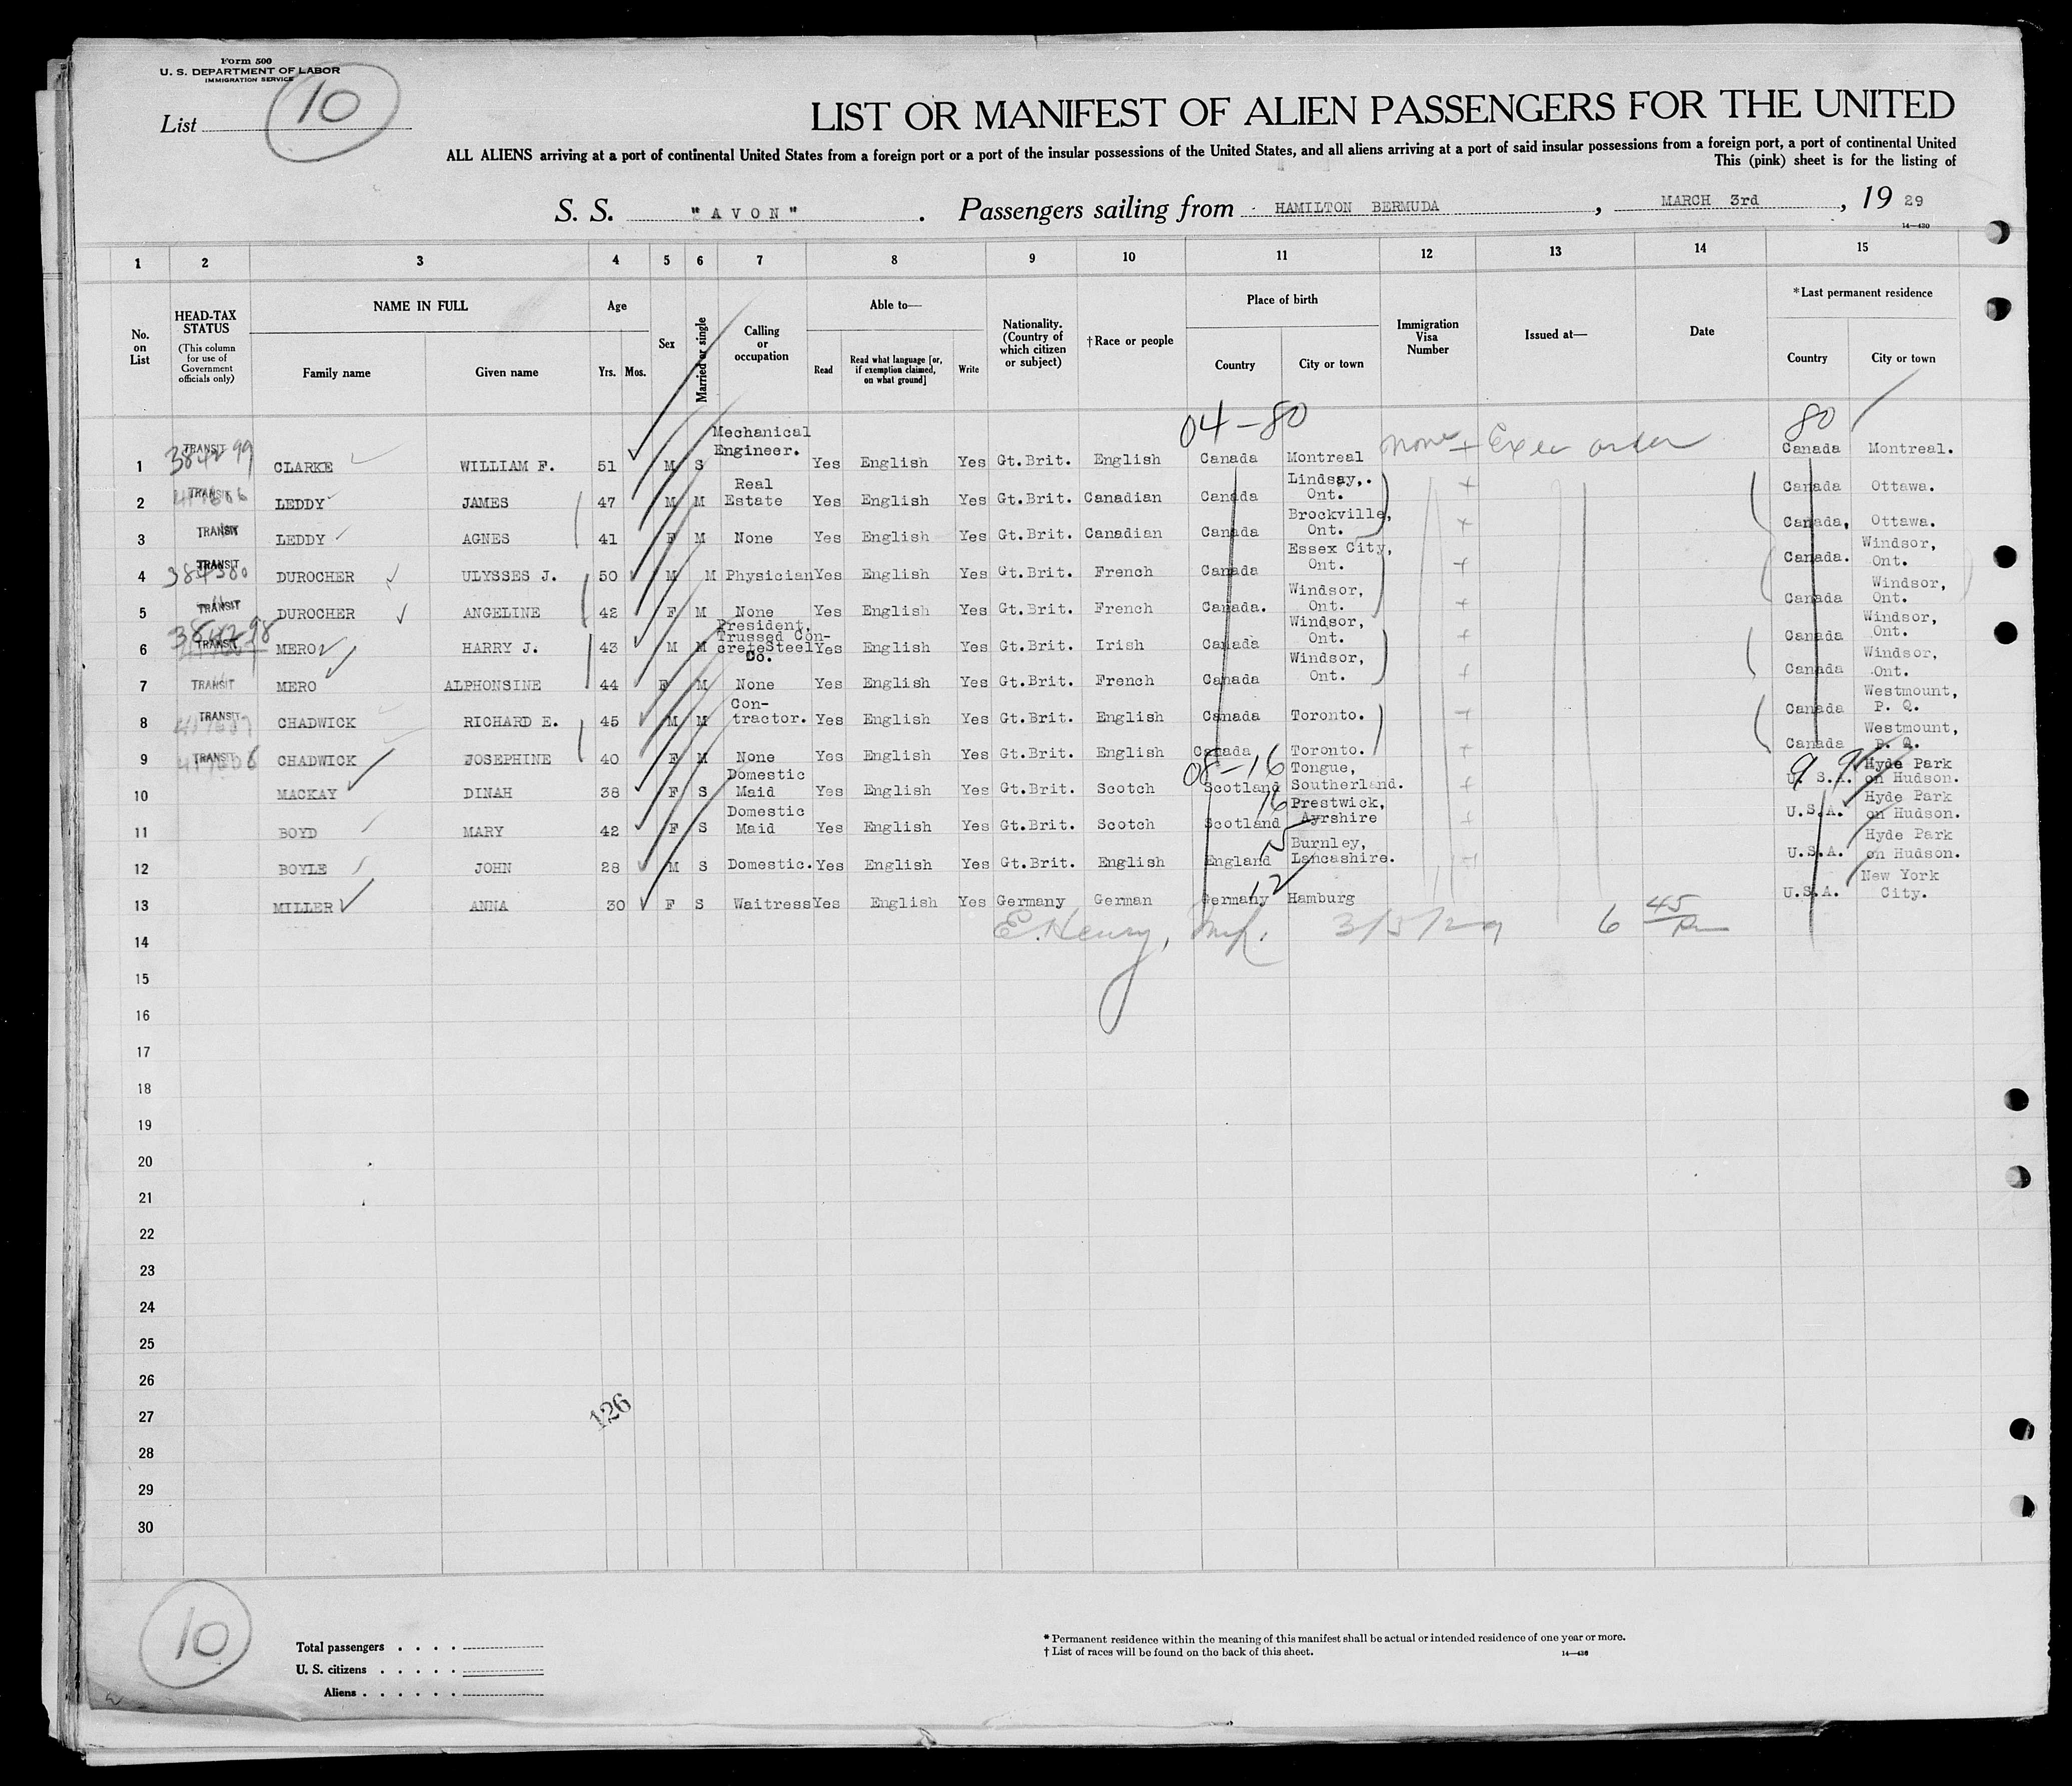 Form 500
U. S. DEPARTMENT OF LABOR
IMMIGRATION SERVICE
List 10
LIST OR MANIFEST OF ALIEN PASSENGERS FOR THE UNITED
ALL ALIENS arriving at a port of continental United States from a foreign port or a port of the insular possessions of the United States, and all aliens arriving at a port of said insular possessions from a foreign port, a port of continental United
This (pink) sheet is for the listing of
S. S. "AVON". Passengers sailing from HAMILTON BERMUDA, MARCH 3rd, 19 29
14—430
1 2 3 4 5 6 7 8 9 10 11 12 13 14 15
No. on List
HEAD-TAX STATUS
(This column for use of Government officials only)
NAME IN FULL
Family name Given name
Age
Yrs. Mos.
Sex
Married or single
Calling or occupation
Able to—
Read
Read what language [or, if exemption claimed, on what ground]
Write
Nationality. (Country of which citizen or subject)
†Race or people
Place of birth
Country City or town
Immigration Visa Number
Issued at—
Date
*Last permanent residence
Country City or town
04-80 80
1 TRANSIT 384299 CLARKE WILLIAM F. 51 M S Mechanical Engineer. Yes English Yes Gt.Brit. English Canada Montreal none + Exec order Canada Montreal.
2 TRANSIT LEDDY JAMES 47 M M Real Estate Yes English Yes Gt.Brit. Canadian Canada Lindsay,. Ont. + Canada Ottawa.
3 TRANSIT LEDDY AGNES 41 F M None Yes English Yes Gt.Brit. Canadian Canada Brockville, Ont. + Canada, Ottawa.
4 TRANSIT 384380 DUROCHER ULYSSES J. 50 M M Physician Yes English Yes Gt.Brit. French Canada Essex City, Ont. + Canada. Windsor, Ont.
5 TRANSIT DUROCHER ANGELINE 42 F M None Yes English Yes Gt.Brit. French Canada. Windsor, Ont. + Canada Windsor, Ont.
6 TRANSIT 384298 MERO HARRY J. 43 M M President, Trussed Con-creteSteel Co. Yes English Yes Gt.Brit. Irish Canada Windsor, Ont. + Canada Windsor, Ont.
7 TRANSIT MERO ALPHONSINE 44 F M None Yes English Yes Gt.Brit. French Canada Windsor, Ont. + Canada Windsor, Ont.
8 TRANSIT CHADWICK RICHARD E. 45 M M Con-tractor. Yes English Yes Gt.Brit. English Canada Toronto. + Canada Westmount, P. Q.
9 TRANSIT CHADWICK JOSEPHINE 40 F M None Yes English Yes Gt.Brit. English Canada Toronto. + Canada Westmount, P. Q.
08-16 99
10 MACKAY DINAH 38 F S Domestic Maid Yes English Yes Gt.Brit. Scotch Scotland Tongue, Southerland. + U. S.A. Hyde Park on Hudson.
11 BOYD MARY 42 F S Domestic Maid Yes English Yes Gt.Brit. Scotch Scotland 16 Prestwick, Ayrshire + U.S.A. Hyde Park on Hudson.
12 BOYLE JOHN 28 M S Domestic. Yes English Yes Gt.Brit. English England Burnley, Lancashire. + U.S.A. Hyde Park on Hudson.
13 MILLER ANNA 30 F S Waitress Yes English Yes Germany German Germany 12 Hamburg U.S.A. New York City.
14 E. Henry, Insp. 3/5/29 6 45 Pm
15
16
17
18
19
20
21
22
23
24
25
26
27
28
29
30
126
10
Total passengers
U. S. citizens
Aliens
* Permanent residence within the meaning of this manifest shall be actual or intended residence of one year or more.
† List of races will be found on the back of this sheet.
14—430